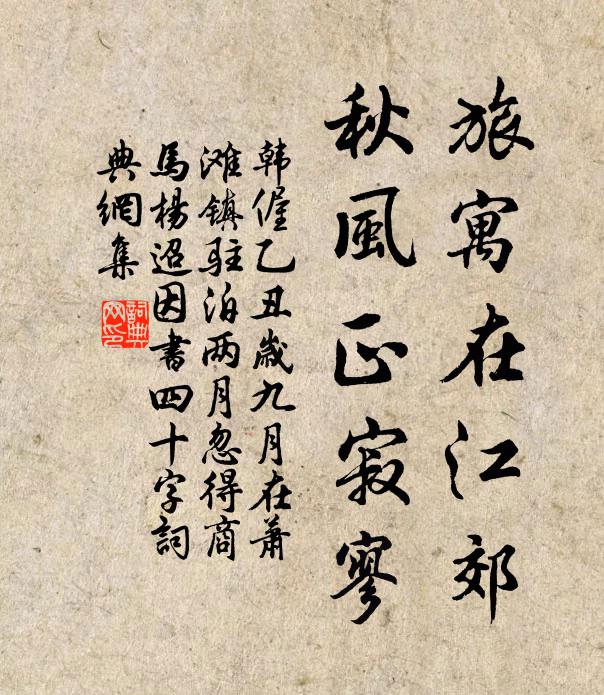 旅寓在江郊
秋風正寂寥
韩偓乙丑歲九月在蕭
滩鎮駐泊两月忽得商
馬楊迢因書四十字詞
典網集
詞典網印